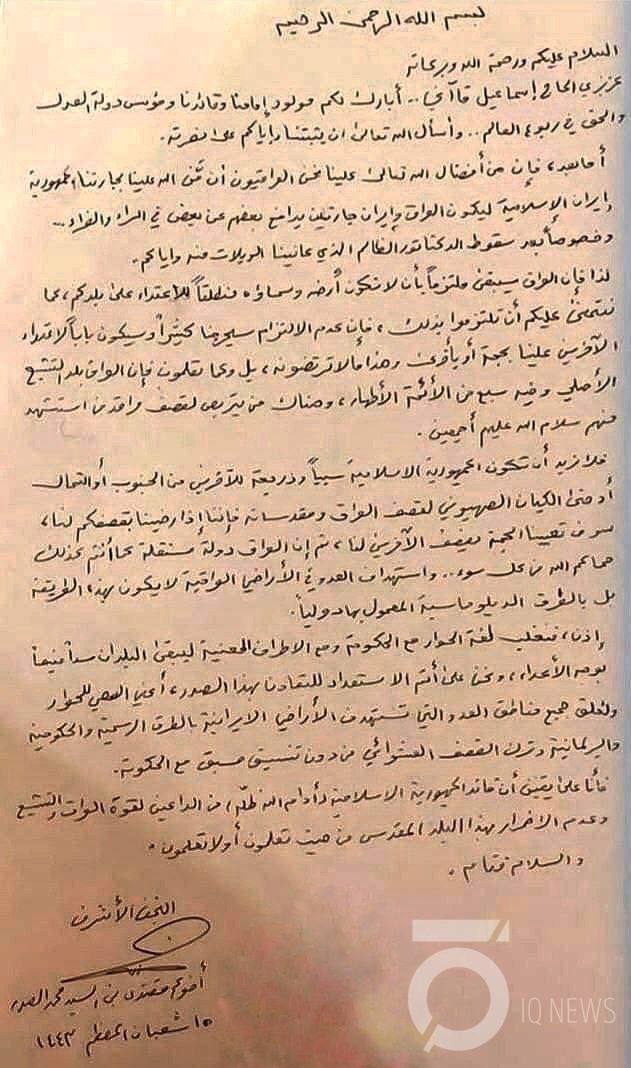 بسم الله الرحمن الرحيم
السلام عليكم ورحمة الله وبركاته
عزيزي الحاج إسماعيل قاآني.. أبارك لكم مولود إمامنا وقائدنا ومؤسس دولة العدل
والحق في ربوع العالم.. وأسأل الله تعالى أن يثبتنا وإياكم على نصرته.
أما بعد، فإن من أفضال الله تعالى علينا نحن العراقيون أن منّ الله علينا بجارتنا الجمهورية
إيران الإسلامية ليكون العراق وإيران جارتين يدافع بعضهم عن بعض في السراء والضراء..
وخصوصاً بعد سقوط الدكتاتور الظالم الذي عانينا الويلات منه وإياكم.
لذا فإن العراق سيبقى ملتزماً بأن لا تكون أرضه وسماؤه منطلقاً للاعتداء على بلدكم، كما
نتمنى عليكم أن تلتزموا بذلك، فإن عدم الالتزام سيحرجنا كثيراً وسيكون باباً لاعتداء
الآخرين علينا بحجة أو بأخرى وهذا ما لا ترتضونه، بل وكما تعلمون فإن العراق بلد التشيع
الأصلي وفيه سبع من الأئمة الأطهار، وهناك من يتربص لقصف مراقد من استشهد
منهم سلام الله عليهم أجمعين.
فلا نريد أن تكون الجمهورية الإسلامية سبباً وذريعة للآخرين من الجنوب أو الشمال
أو حتى الكيان الصهيوني لقصف العراق ومقدساته فإننا إذا رضينا بقصفكم لنا،
سوف تعيينا الحجة بقصف الآخرين لنا، ثم إن العراق دولة مستقلة كما أنتم كذلك
حماكم الله من كل سوء.. واستهداف العدو في الأراضي العراقية لا يكون بهذه الطريقة
بل بالطرق الدبلوماسية المعمول بها دولياً.
إذن، فنغلب لغة الحوار مع الحكومة ومع الأطراف المعنية ليبقى البلدان سداً منيعاً
بوجه الأعداء، ونحن على أتم الاستعداد للتعاون بهذا الصدد، أعني السعي للحوار
ولغلق جميع مناطق العدو التي تستهدف الأراضي الإيرانية بالطرق الرسمية والحكومية
والبرلمانية وترك القصف العشوائي من دون تنسيق مسبق مع الحكومة.
فأنا على يقين أن قائد الجمهورية الإسلامية (أدام الله ظله) من الداعين لقوة العراق والتشيع
وعدم الإضرار بهذا البلد المقدس من حيث تعلمون أو لا تعلمون.
والسلام ختام.
النجف الأشرف
أخوكم مقتدى بن السيد محمد الصدر
١٥ شعبان المعظم ١٤٤٣
IQ NEWS